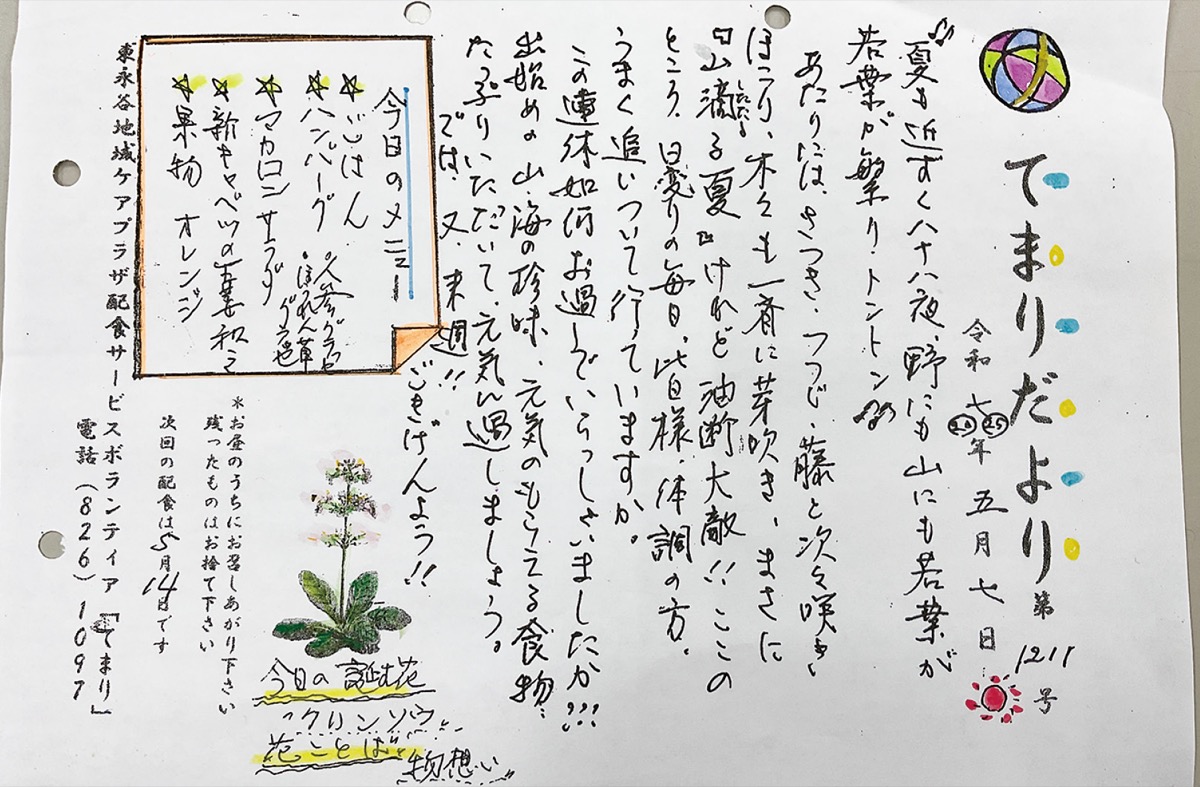 てまりだより 第1211号
令和七年 五月七日
2025
♫夏も近ずく八十八夜、野にも山にも若葉が
若葉が繁り・トントン♫
あたりには、さつき、つつじ、藤と次々咲き
ほこり、木々も一斉に芽吹き、まさに
「山滴る夏」けれど油断大敵!!ここの
ところ、日変りの毎日、皆様、体調の方、
うまく追いついて行っていますか。
この連休如何お過しでいらっしゃいましたか!!!
出始めの山、海の珍味、元気のもらえる食物、
たっぷりいただいて、元気に過しましょう。
では、又、来週!! ごきげんよう!!
今日のメニュー
☆ごはん
☆ハンバーグ
人参グラッセ
ほうれん草
☆マカロニサラダ
☆新キャベツの
☆果物 オレンジ
*お昼のうちにお召しあがり下さい
残ったものはお捨て下さい
次回の配食は5月14日です
今日の誕生花
"クリンソウ"
花ことば
"物想い"
東永谷地域ケアプラザ配食サービスボランティア「てまり」
電話(826)1097